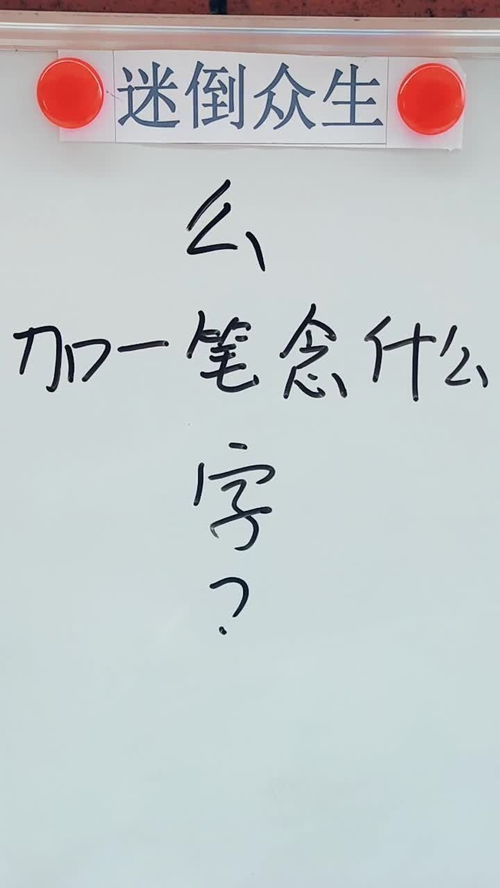 迷倒众生
么
加一笔念什么
字
?